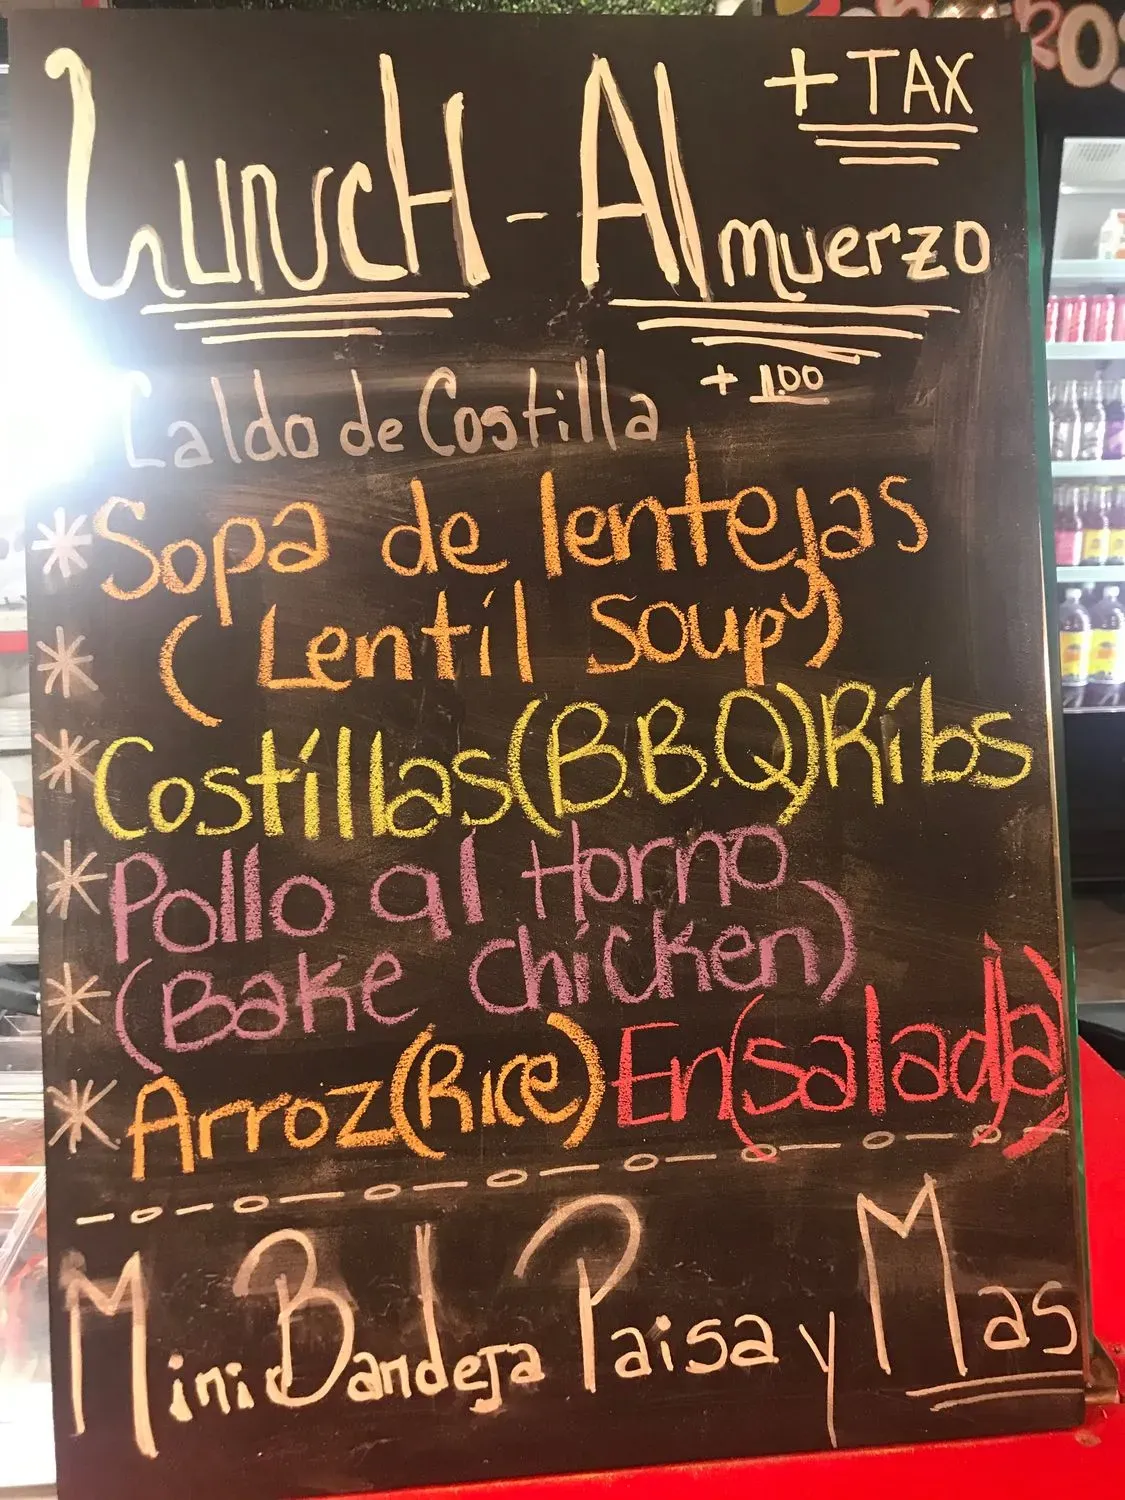 + TAX
LUNCH - Almuerzo
+ 1.00
Caldo de Costilla
* Sopa de lentejas
* (Lentil Soup)
* Costillas (B.B.Q) Ribs
* Pollo al Horno
* (Bake chicken)
* Arroz (Rice) En(salad)a)
Mini Bandeja Paisa y Mas